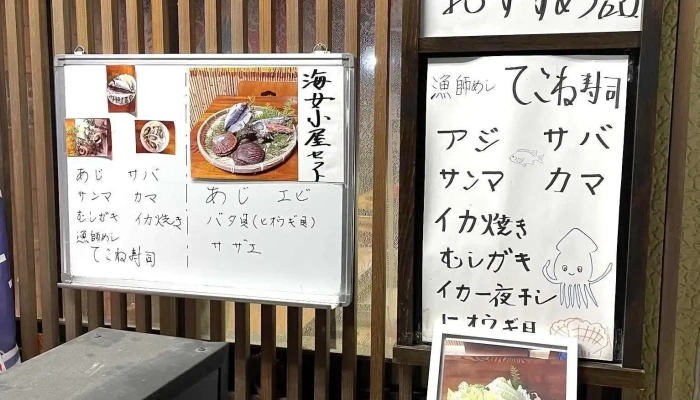 海女小屋セット
あじ サバ
サンマ カマ
むしガキ イカ焼き
漁師めし
てこね寿司
あじ エビ
バタ貝(ヒオウギ貝)
サザエ
おすすめ
漁師めし てこね寿司
アジ サバ
サンマ カマ
イカ焼き
むしガキ
イカ一夜干し
ヒオウギ貝